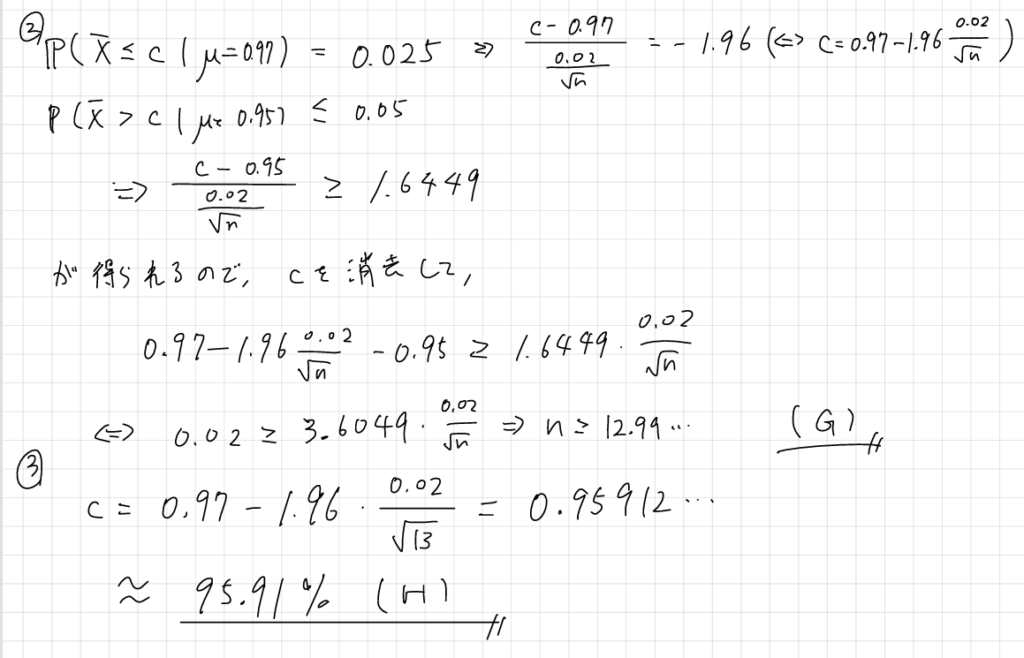 ② P(X̄ ≤ c | μ=0.97) = 0.025 ⇒ (c - 0.97)/(0.02/√n) = -1.96 (⇔ c = 0.97 - 1.96 0.02/√n)
P(X̄ > c | μ = 0.95) ≤ 0.05
⇒ (c - 0.95)/(0.02/√n) ≥ 1.6449
が得られるので, cを消去して,
0.97 - 1.96 0.02/√n - 0.95 ≥ 1.6449 · 0.02/√n
⇔ 0.02 ≥ 3.6049 · 0.02/√n ⇒ n ≥ 12.99… (G)
③
c = 0.97 - 1.96 · 0.02/√13 = 0.95912…
≈ 95.91% (H)